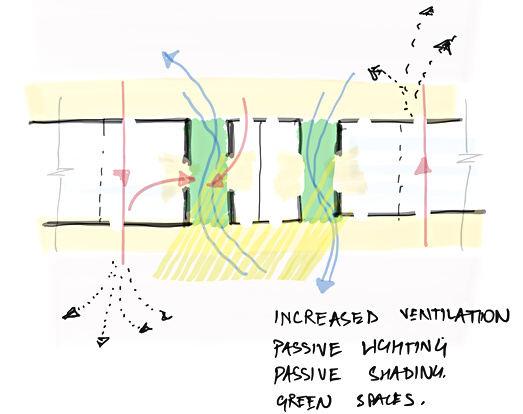 INCREASED VENTILATION
PASSIVE LIGHTING
PASSIVE SHADING.
GREEN SPACES.